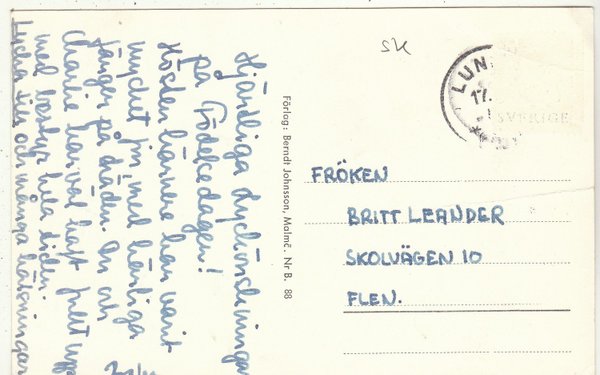 Hjärtliga Lyckönskningar
på Födelsedagen!
Hösten härnere har varit
mycket fin, med härliga
färger på träden. Du och
Charlie har väl haft fullt upp
med hela tiden.
Lycka till och många hälsningar
Förlag: Berndt Johnsson, Malmö. Nr B. 88
SK
LUN
17.
SVERIGE
FRÖKEN
BRITT LEANDER
SKOLVÄGEN 10
FLEN.